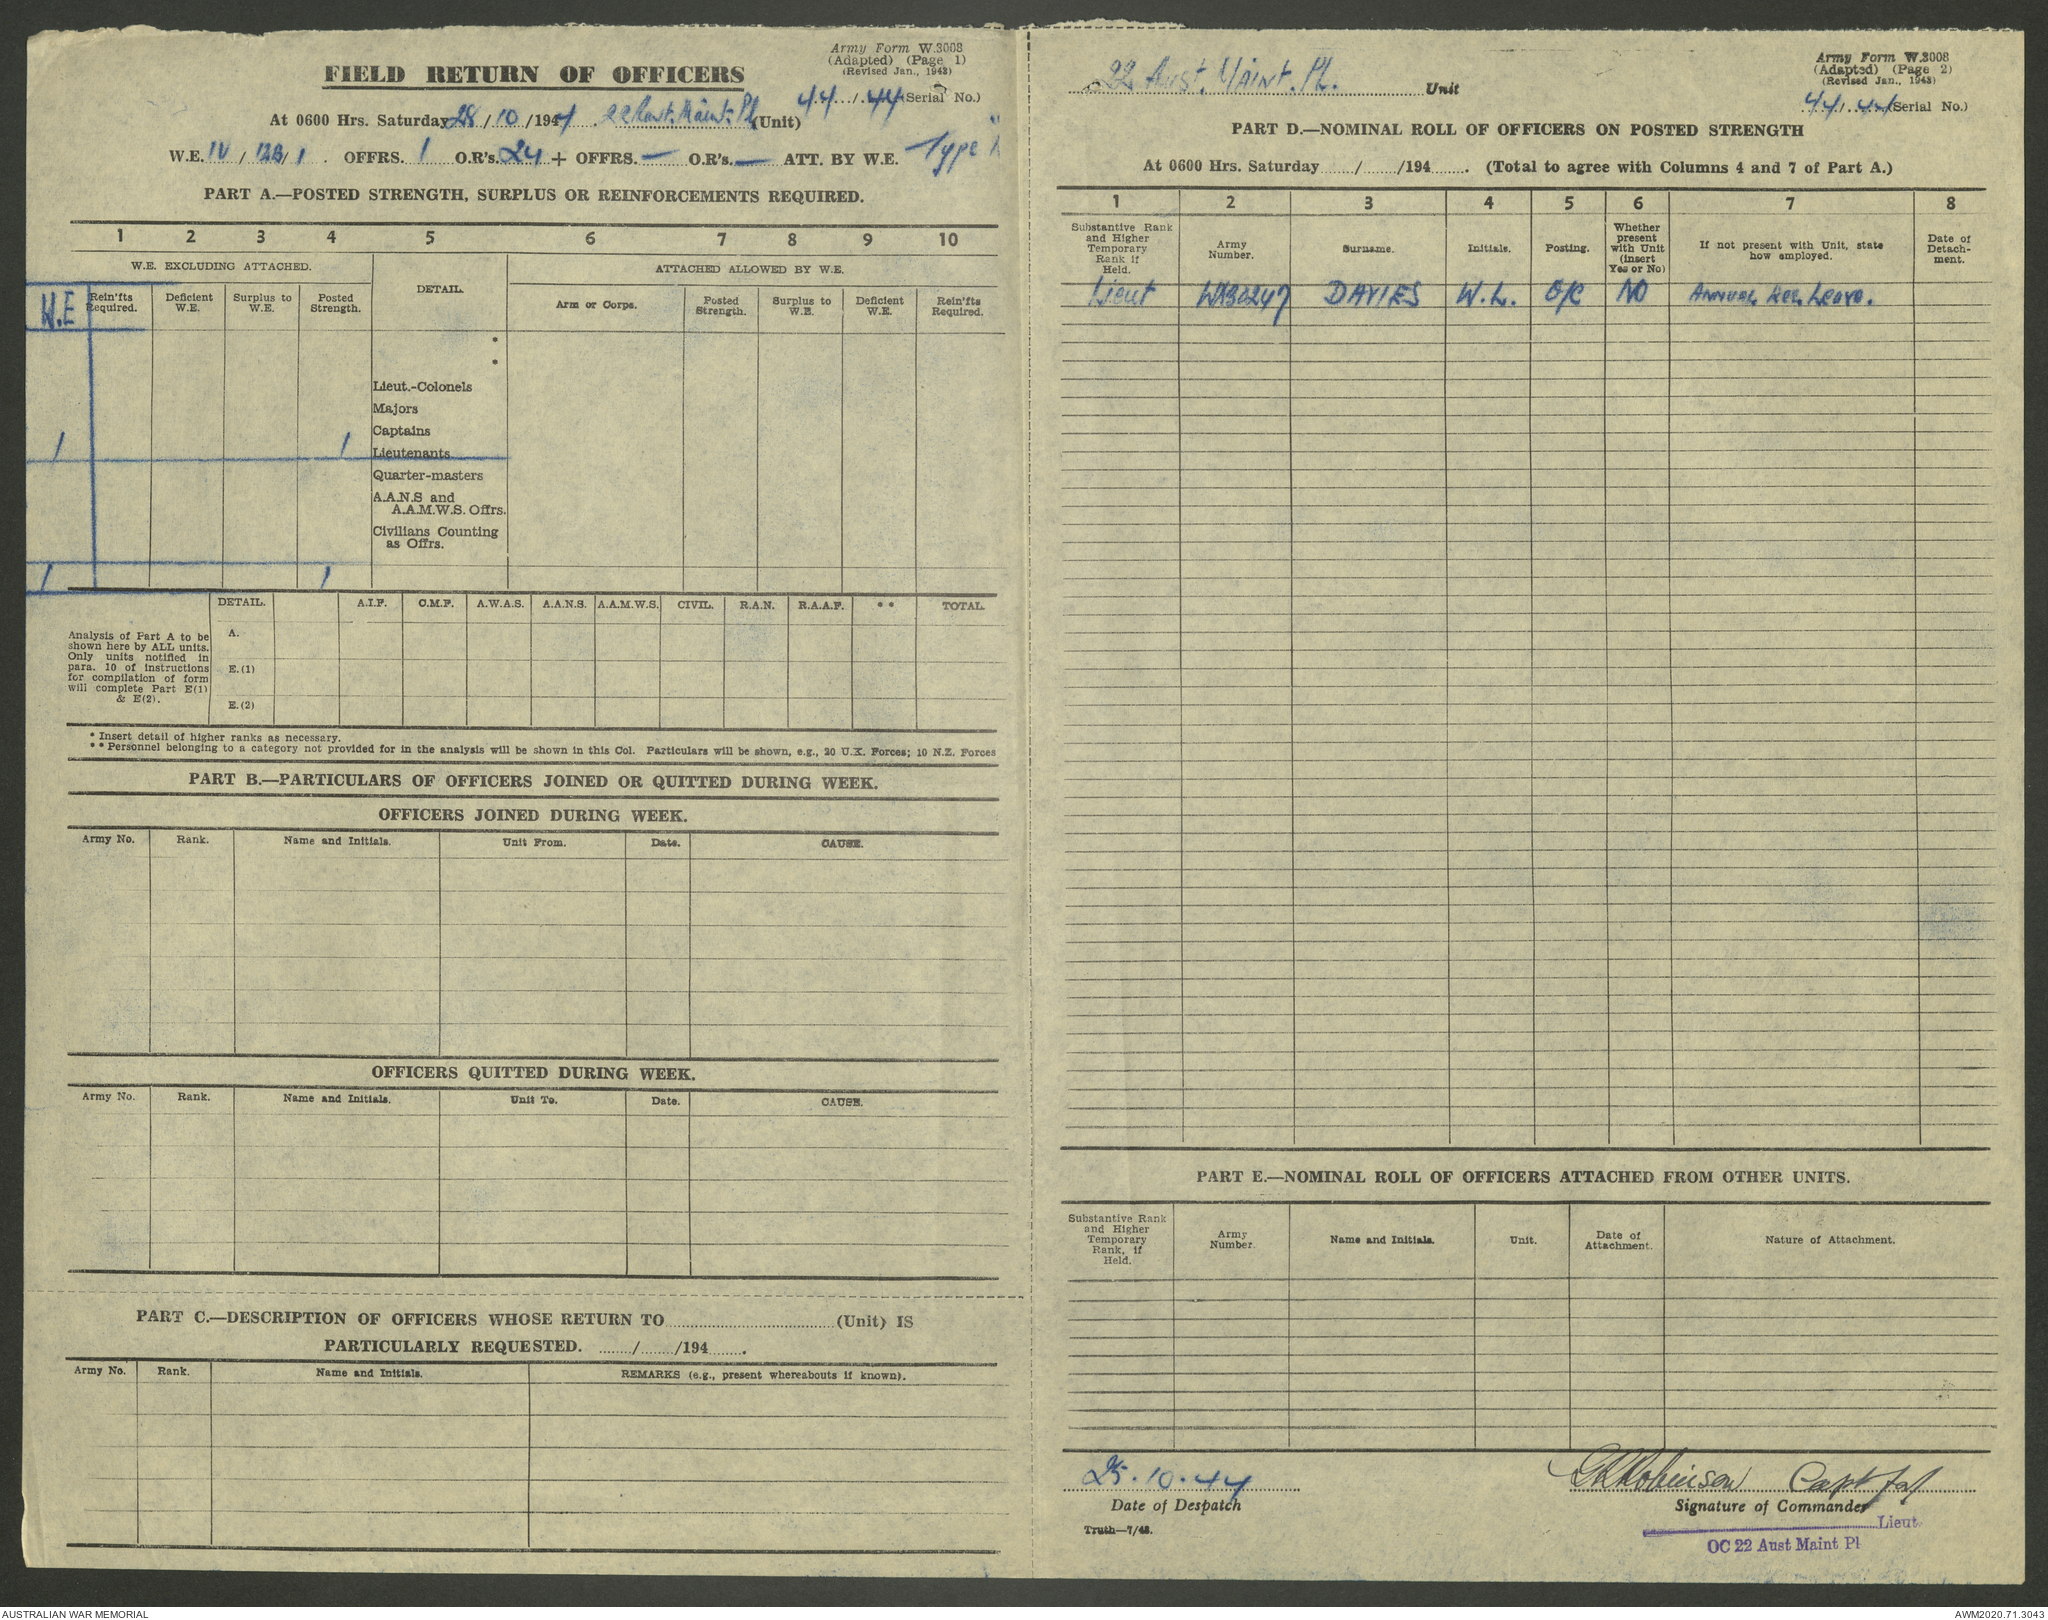 Army Form W.3008
(Adapted) (Page 1)
(Revised Jan., 1943)
FIELD RETURN OF OFFICERS
44/44 (Serial No.)
At 0600 Hrs. Saturday 28/10/1944. 22 Aust. Maint. Pl. (Unit)
W.E. IV/12B/1. OFFRS. 1 O.R's. 24 + OFFRS. — O.R's. — ATT. BY W.E. Type
PART A.—POSTED STRENGTH, SURPLUS OR REINFORCEMENTS REQUIRED.
1 2 3 4 5 6 7 8 9 10
W.E. EXCLUDING ATTACHED.
DETAIL.
ATTACHED ALLOWED BY W.E.
W.E
Rein'fts Required.
Deficient W.E.
Surplus to W.E.
Posted Strength.
Arm or Corps.
Posted Strength.
Surplus to W.E.
Deficient W.E.
Rein'fts Required.
*
*
Lieut.-Colonels
Majors
Captains
1 1 Lieutenants
Quarter-masters
A.A.N.S and
A.A.M.W.S. Offrs.
Civilians Counting
as Offrs.
1 1
DETAIL. A.I.F. C.M.F. A.W.A.S. A.A.N.S. A.A.M.W.S. CIVIL. R.A.N. R.A.A.F. ** TOTAL.
Analysis of Part A to be
shown here by ALL units.
Only units notified in
para. 10 of instructions
for compilation of form
will complete Part E(1)
& E(2).
A.
E.(1)
E.(2)
* Insert detail of higher ranks as necessary.
** Personnel belonging to a category not provided for in the analysis will be shown in this Col. Particulars will be shown, e.g., 20 U.K. Forces; 10 N.Z. Forces
PART B.—PARTICULARS OF OFFICERS JOINED OR QUITTED DURING WEEK.
OFFICERS JOINED DURING WEEK.
Army No. Rank. Name and Initials. Unit From. Date. CAUSE.
OFFICERS QUITTED DURING WEEK.
Army No. Rank. Name and Initials. Unit To. Date. CAUSE.
PART C.—DESCRIPTION OF OFFICERS WHOSE RETURN TO ........ (Unit) IS
PARTICULARLY REQUESTED. ......../......../194........
Army No. Rank. Name and Initials. REMARKS (e.g., present whereabouts if known).
Army Form W.3008
(Adapted) (Page 2)
(Revised Jan., 1943)
22 Aust. Maint. Pl. Unit
44/44 (Serial No.)
PART D.—NOMINAL ROLL OF OFFICERS ON POSTED STRENGTH
At 0600 Hrs. Saturday ......../......../194........ (Total to agree with Columns 4 and 7 of Part A.)
1 2 3 4 5 6 7 8
Substantive Rank and Higher Temporary Rank if Held.
Army Number.
Surname.
Initials.
Posting.
Whether present with Unit (insert Yes or No)
If not present with Unit, state how employed.
Date of Detach-ment.
Lieut WX30247 DAVIES W.L. O/C NO ANNUAL REC. LEAVE.
PART E.—NOMINAL ROLL OF OFFICERS ATTACHED FROM OTHER UNITS.
Substantive Rank and Higher Temporary Rank, if Held.
Army Number.
Name and Initials.
Unit.
Date of Attachment.
Nature of Attachment.
25.10.44
Date of Despatch
Truth—7/43.
Robinson Capt for
Signature of Commander
Lieut
OC 22 Aust Maint Pl
AUSTRALIAN WAR MEMORIAL
AWM2020.71.3043